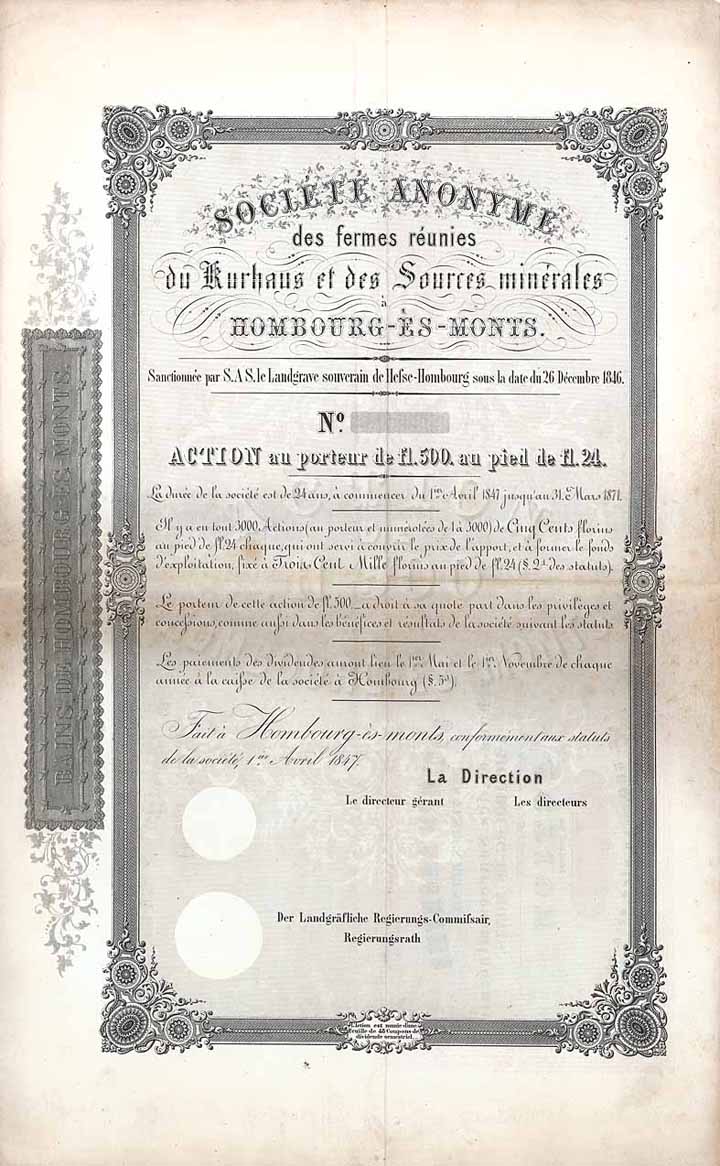 SOCIÉTÉ ANONYME
des fermes réunies
du Kurhaus et des Sources minérales
à
HOMBOURG-ÈS-MONTS.
Sanctionnée par S.A.S. le Landgrave souverain de Hesse-Hombourg sous la date du 26 Décembre 1846.
No.
ACTION au porteur de fl. 500. au pied de fl. 24.
La durée de la société est de 24 ans, à commencer du 1er Avril 1847 jusqu'au 31. Mars 1871.
Il y a en tout 3000. Actions (au porteur et numérotées de 1 à 3000) de Cinq Cents florins
au pied de fl. 24 chaque, qui ont servi à couvrir le prix de l'apport, et à former le fonds
d'exploitation, fixé à Trois Cent Mille florins au pied de fl. 24 (§. 2d des statuts).
Le porteur de cette action de fl. 500._ a droit à sa quote part dans les privilèges et
concessions, comme aussi dans les bénéfices et résultats de la société suivant les statuts.
Les paiements des dividendes auront lieu le 1er Mai et le 1er Novembre de chaque
année à la caisse de la société à Hombourg (§. 5d).
Fait à Hombourg-ès-monts, conformement aux statuts
de la société, 1er Avril 1847.
La Direction
Le directeur gérant Les directeurs
Der Landgräfliche Regierungs-Commissair,
Regierungsrath
L'action est munie d'une
feuille de 48 Coupons de
dividende semestriel.
BAINS DE HOMBOURG-ÈS-MONTS.